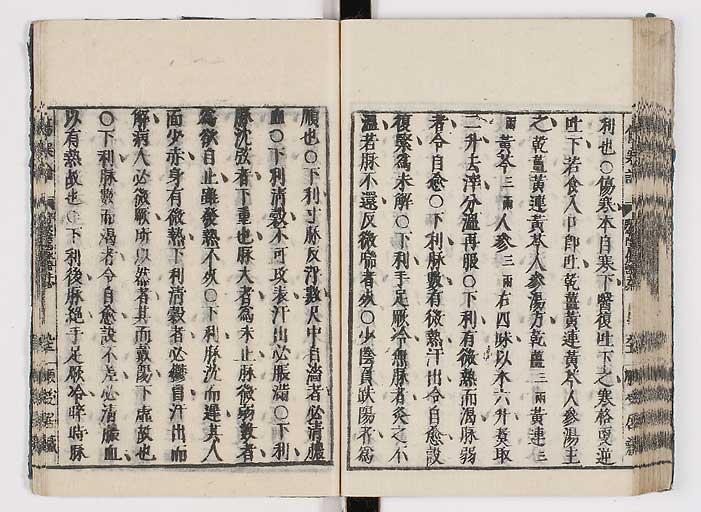 利也○傷寒本自寒下醫復吐下之寒格更逆
吐下若食入口即吐乾薑黃連黃芩人參湯主
之乾薑黃連黃芩人參湯方乾薑三兩黃連三
兩黃芩三兩人參三兩右四味以水六升煑取
二升去滓分溫再服○下利有微熱而渴脉弱
者令自愈○下利脉數有微熱汗出令自愈設
復緊爲未解○下利手足厥冷無脉者灸之不
溫若脉不還反微喘者死○少陰負趺陽者爲
順也○下利寸脉反浮數尺中自濇者必清膿
血○下利清穀不可攻表汗出必脹滿○下利
脉沈弦者下重也脉大者爲未止脉微弱數者
爲欲自止雖發熱不死○下利脉沈而遲其人
面少赤身有微熱下利清穀者必鬱冒汗出而
解病人必微厥所以然者其面戴陽下虛故也
○下利脉數而渴者令自愈設不差必清膿血
以有熱故也○下利後脉絕手足厥冷晬時脉